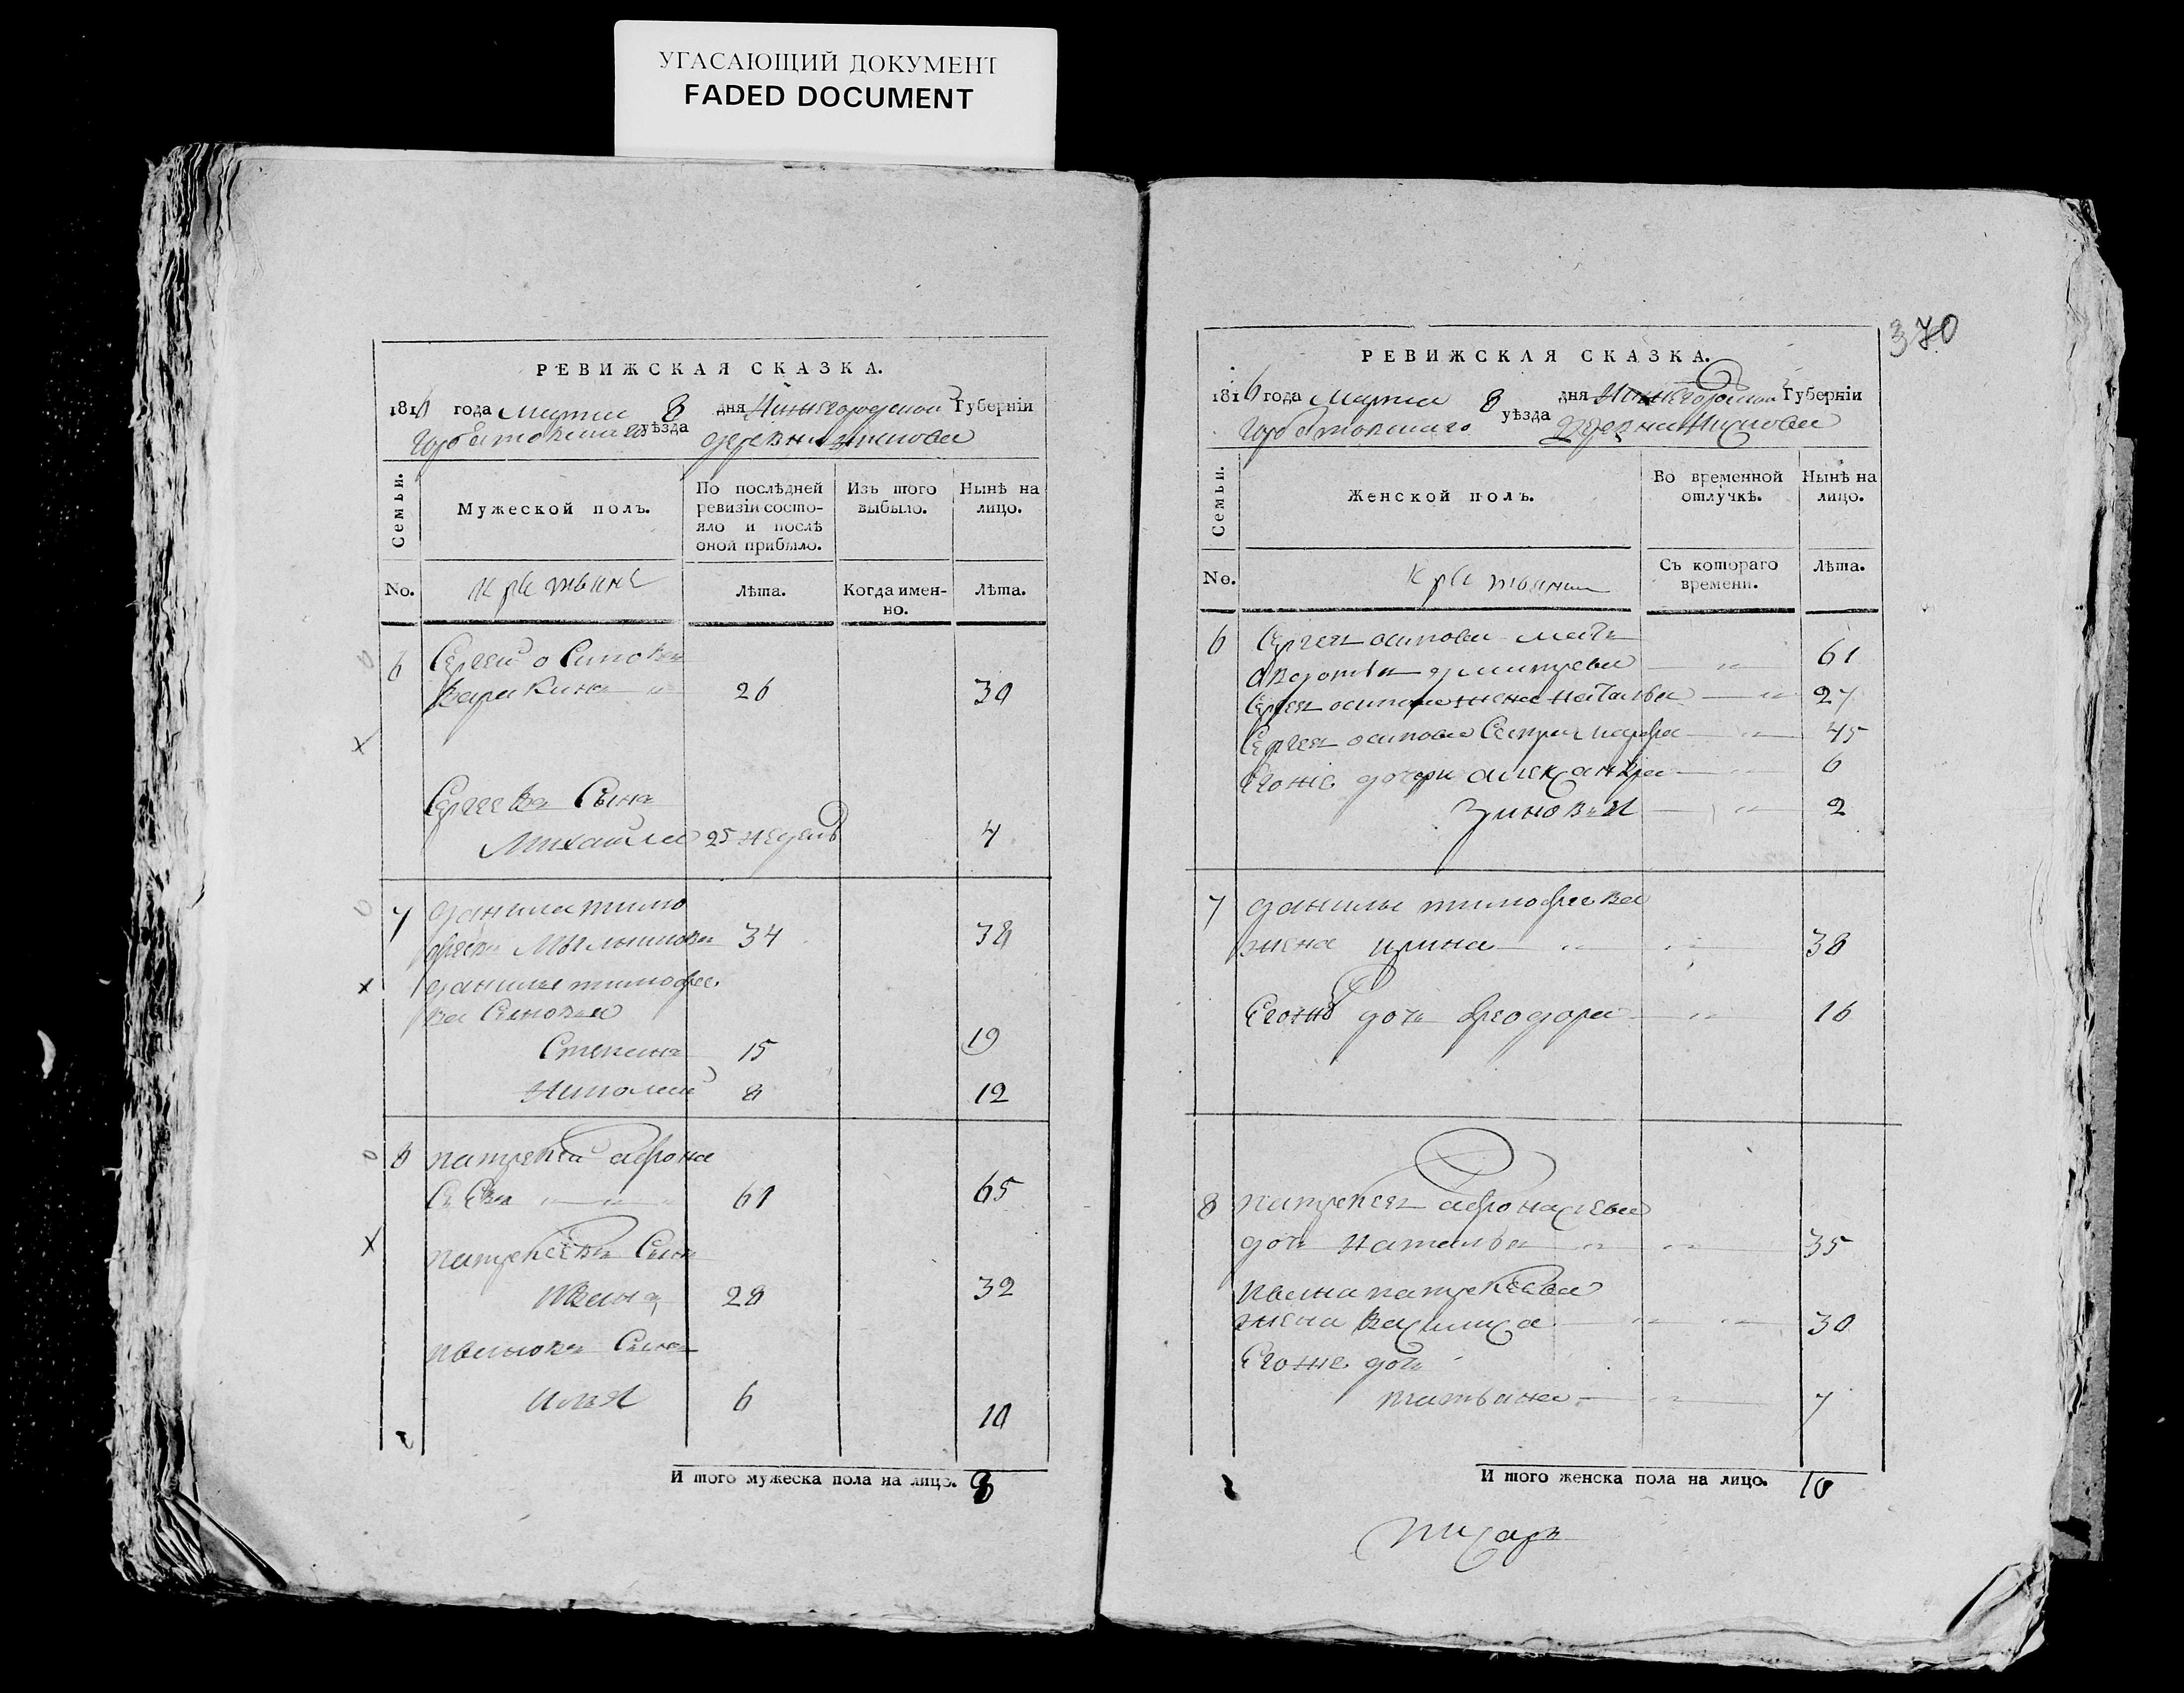 УГАСАЮЩИЙ ДОКУМЕНТ
FADED DOCUMENT
РЕВИЖСКАЯ СКАЗКА.
181 года Марта 8 дня Нижегородской Губерніи
Горбатовскаго уѣзда деревни
Семьи.
Мужеской полъ.
По послѣдней ревизіи состояло и послѣ оной прибыло.
Изъ того выбыло.
Нынѣ на лицо.
No.
Крестьяне
Лѣта.
Когда именно.
Лѣта.
6 Сергей Осиповъ
26 30
Сергеевъ Сынъ
Михайла 25 недель 4
7 данила тимо
феевъ Мыльниковъ 34 38
данилы тимофее
ва Сыновья
Степанъ 15 19
Николай 8 12
8 патрекей афона
сьевъ 61 65
патрекеевъ Сынъ
Иванъ 28 32
ивановъ Сынъ
илья 6 10
И того мужеска пола на лицо. 8
370
РЕВИЖСКАЯ СКАЗКА.
1816 года Марта 8 дня Нижегородской Губерніи
Горбатовскаго уѣзда деревни
Семьи.
Женской полъ.
Во временной отлучкѣ.
Нынѣ на лицо.
No.
Крестьяне
Съ котораго времени.
Лѣта.
6 Сергея осипова мать
авдотья дмитрева 61
Сергея осипова жена наталья 27
Сергея осипова Сестра 45
Егоже дочери александра 6
Зиновья 2
7 данилы тимофеева
жена ирина 38
Егоже дочь феодора 16
8 патрекея афонасьева
дочь наталья 35
ивана патрекеева
жена василиса 30
Егоже дочь
татьяна 7
И того женска пола на лицо. 10
писарь